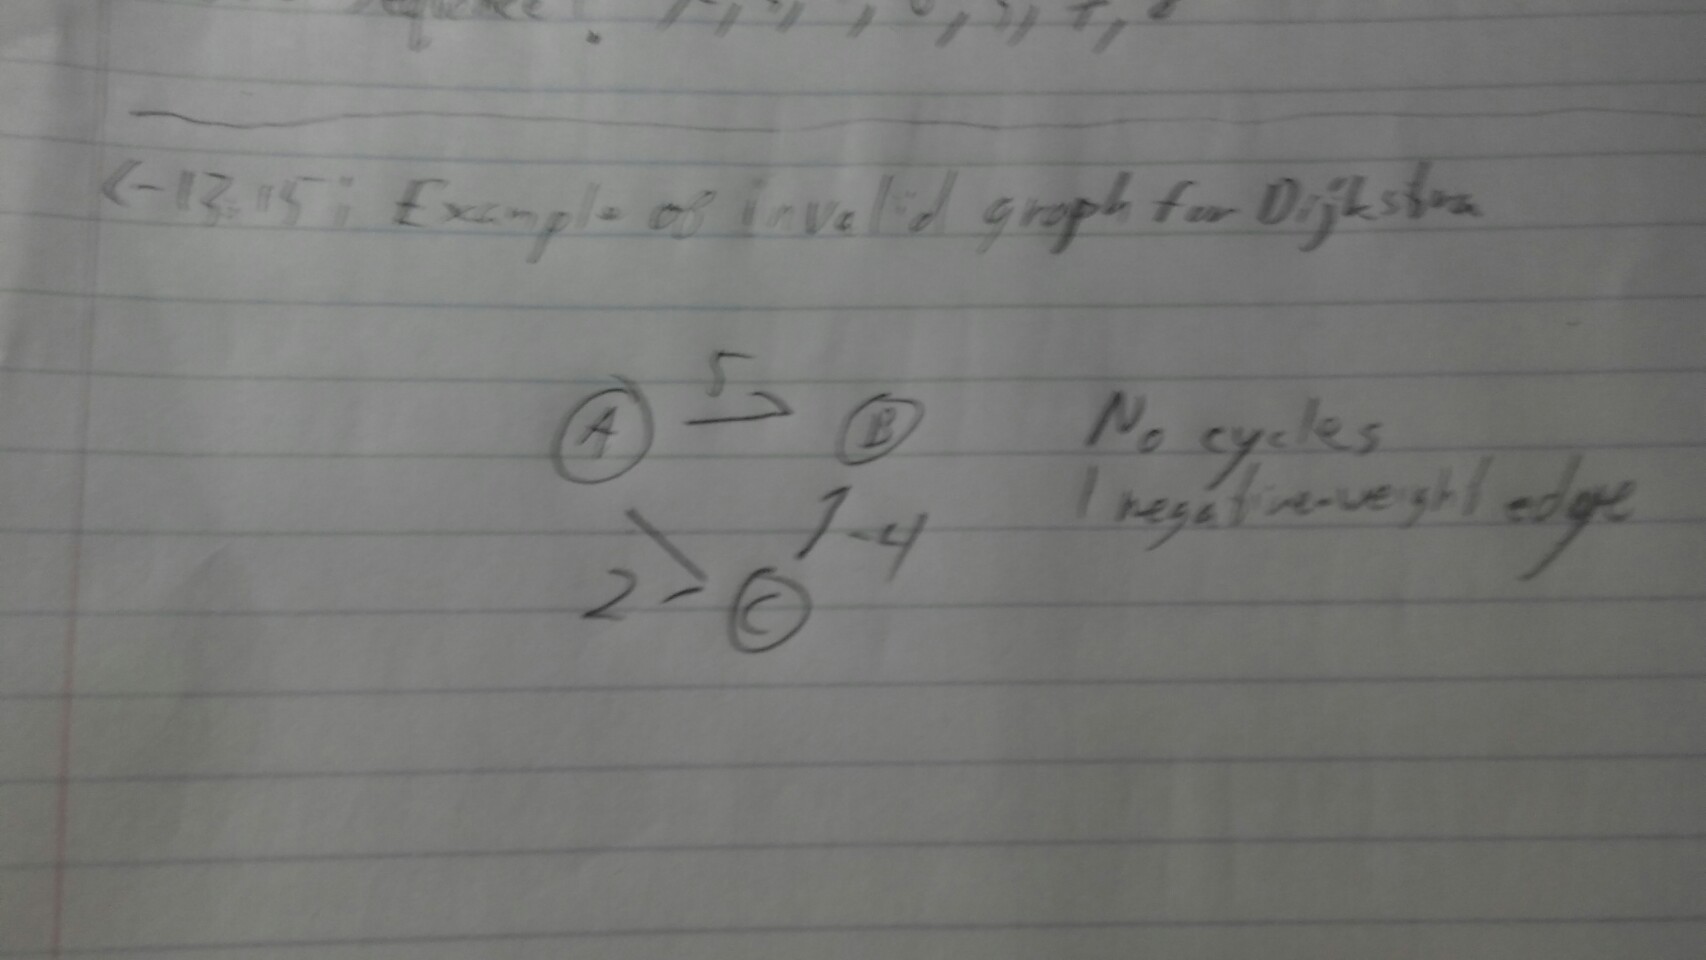 sequence:
C-13.15: Example of invalid graph for Dijkstra
5
A B
No cycles
1 negative-weight edge
-4
2 C